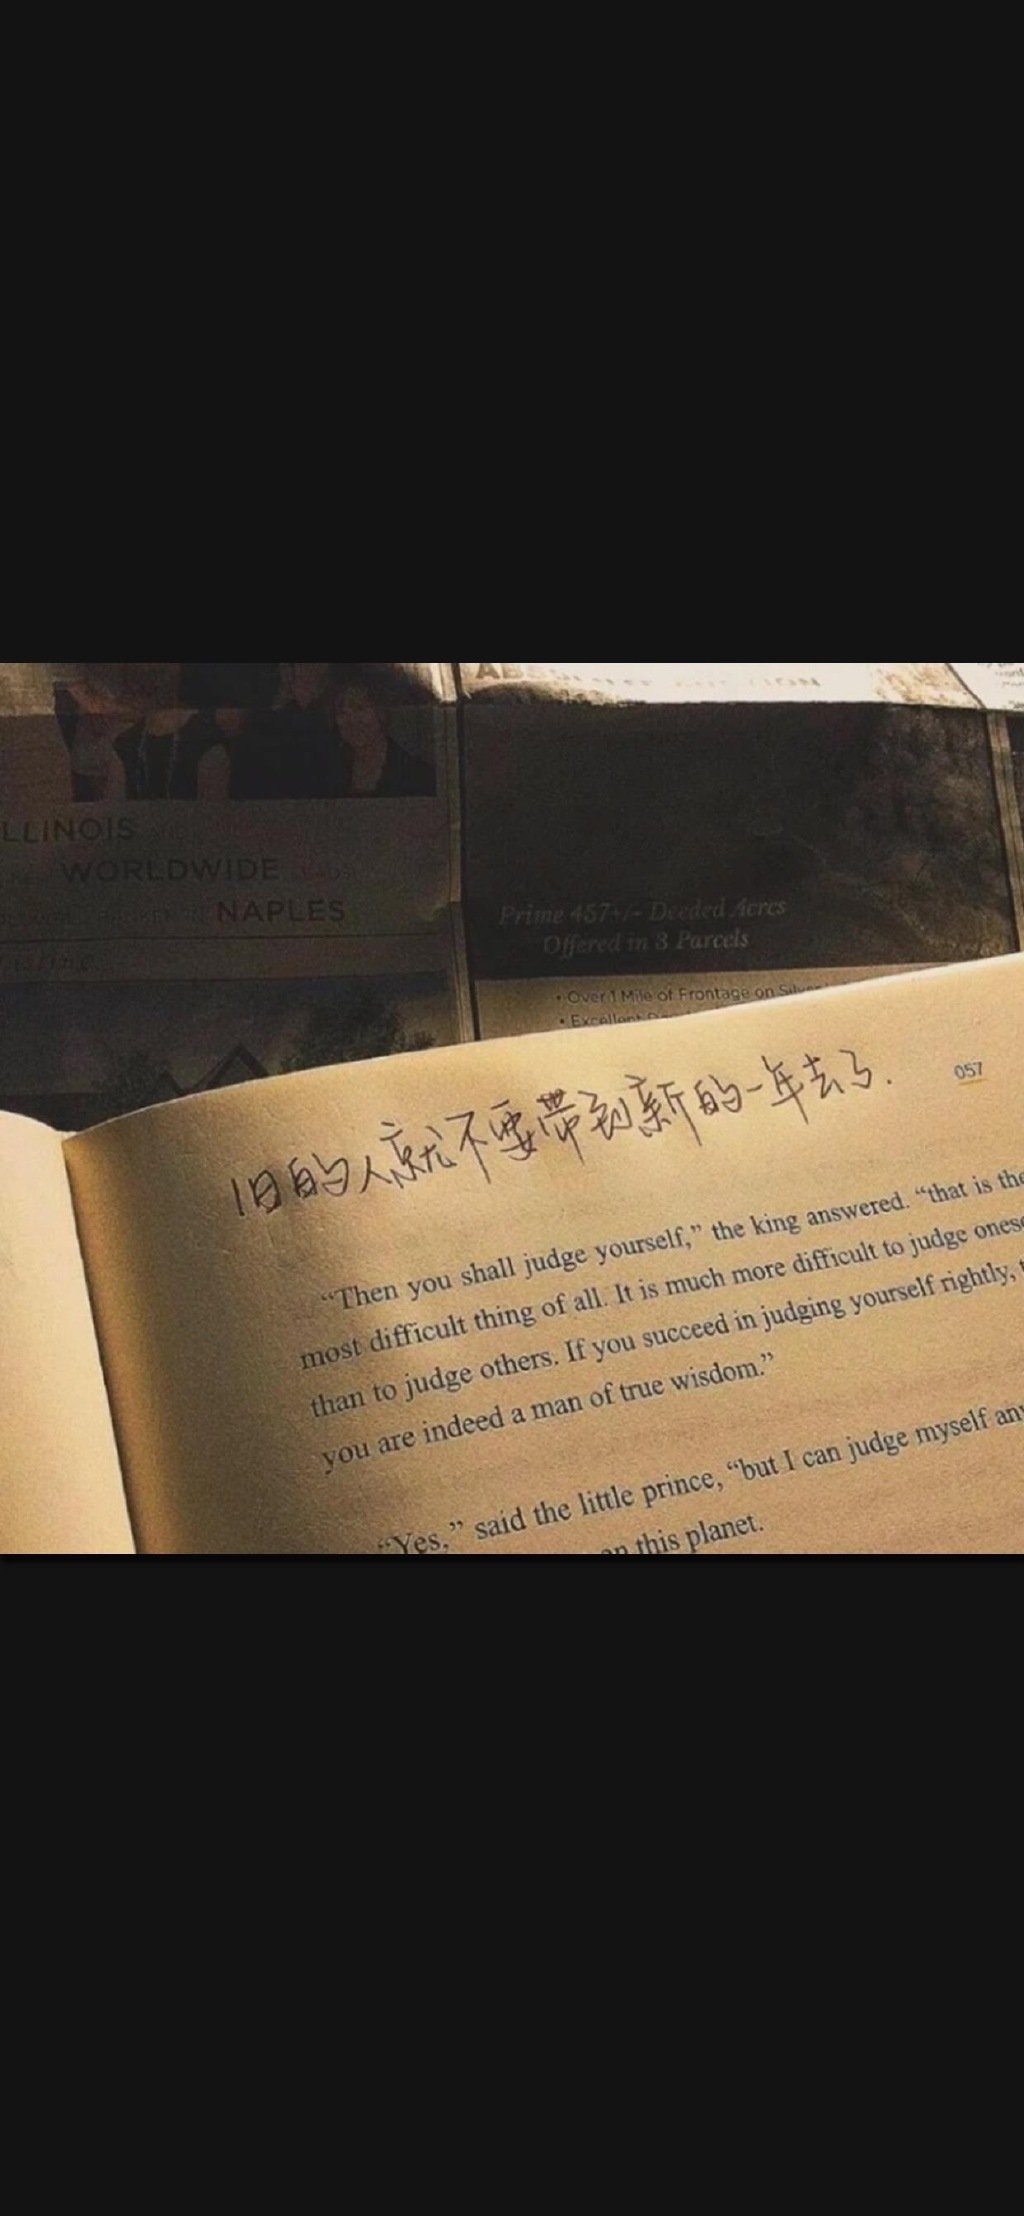 AB
LLINOIS
WORLDWIDE
NAPLES
Prime 457+/- Deeded Acres
Offered in 3 Parcels
• Over 1 Mile of Frontage on
• Excellent
旧的人就不要带到新的一年去了.
057
“Then you shall judge yourself,” the king answered. “that is the
most difficult thing of all. It is much more difficult to judge ones
than to judge others. If you succeed in judging yourself rightly,
you are indeed a man of true wisdom.”
“Yes,” said the little prince, “but I can judge myself an
on this planet.